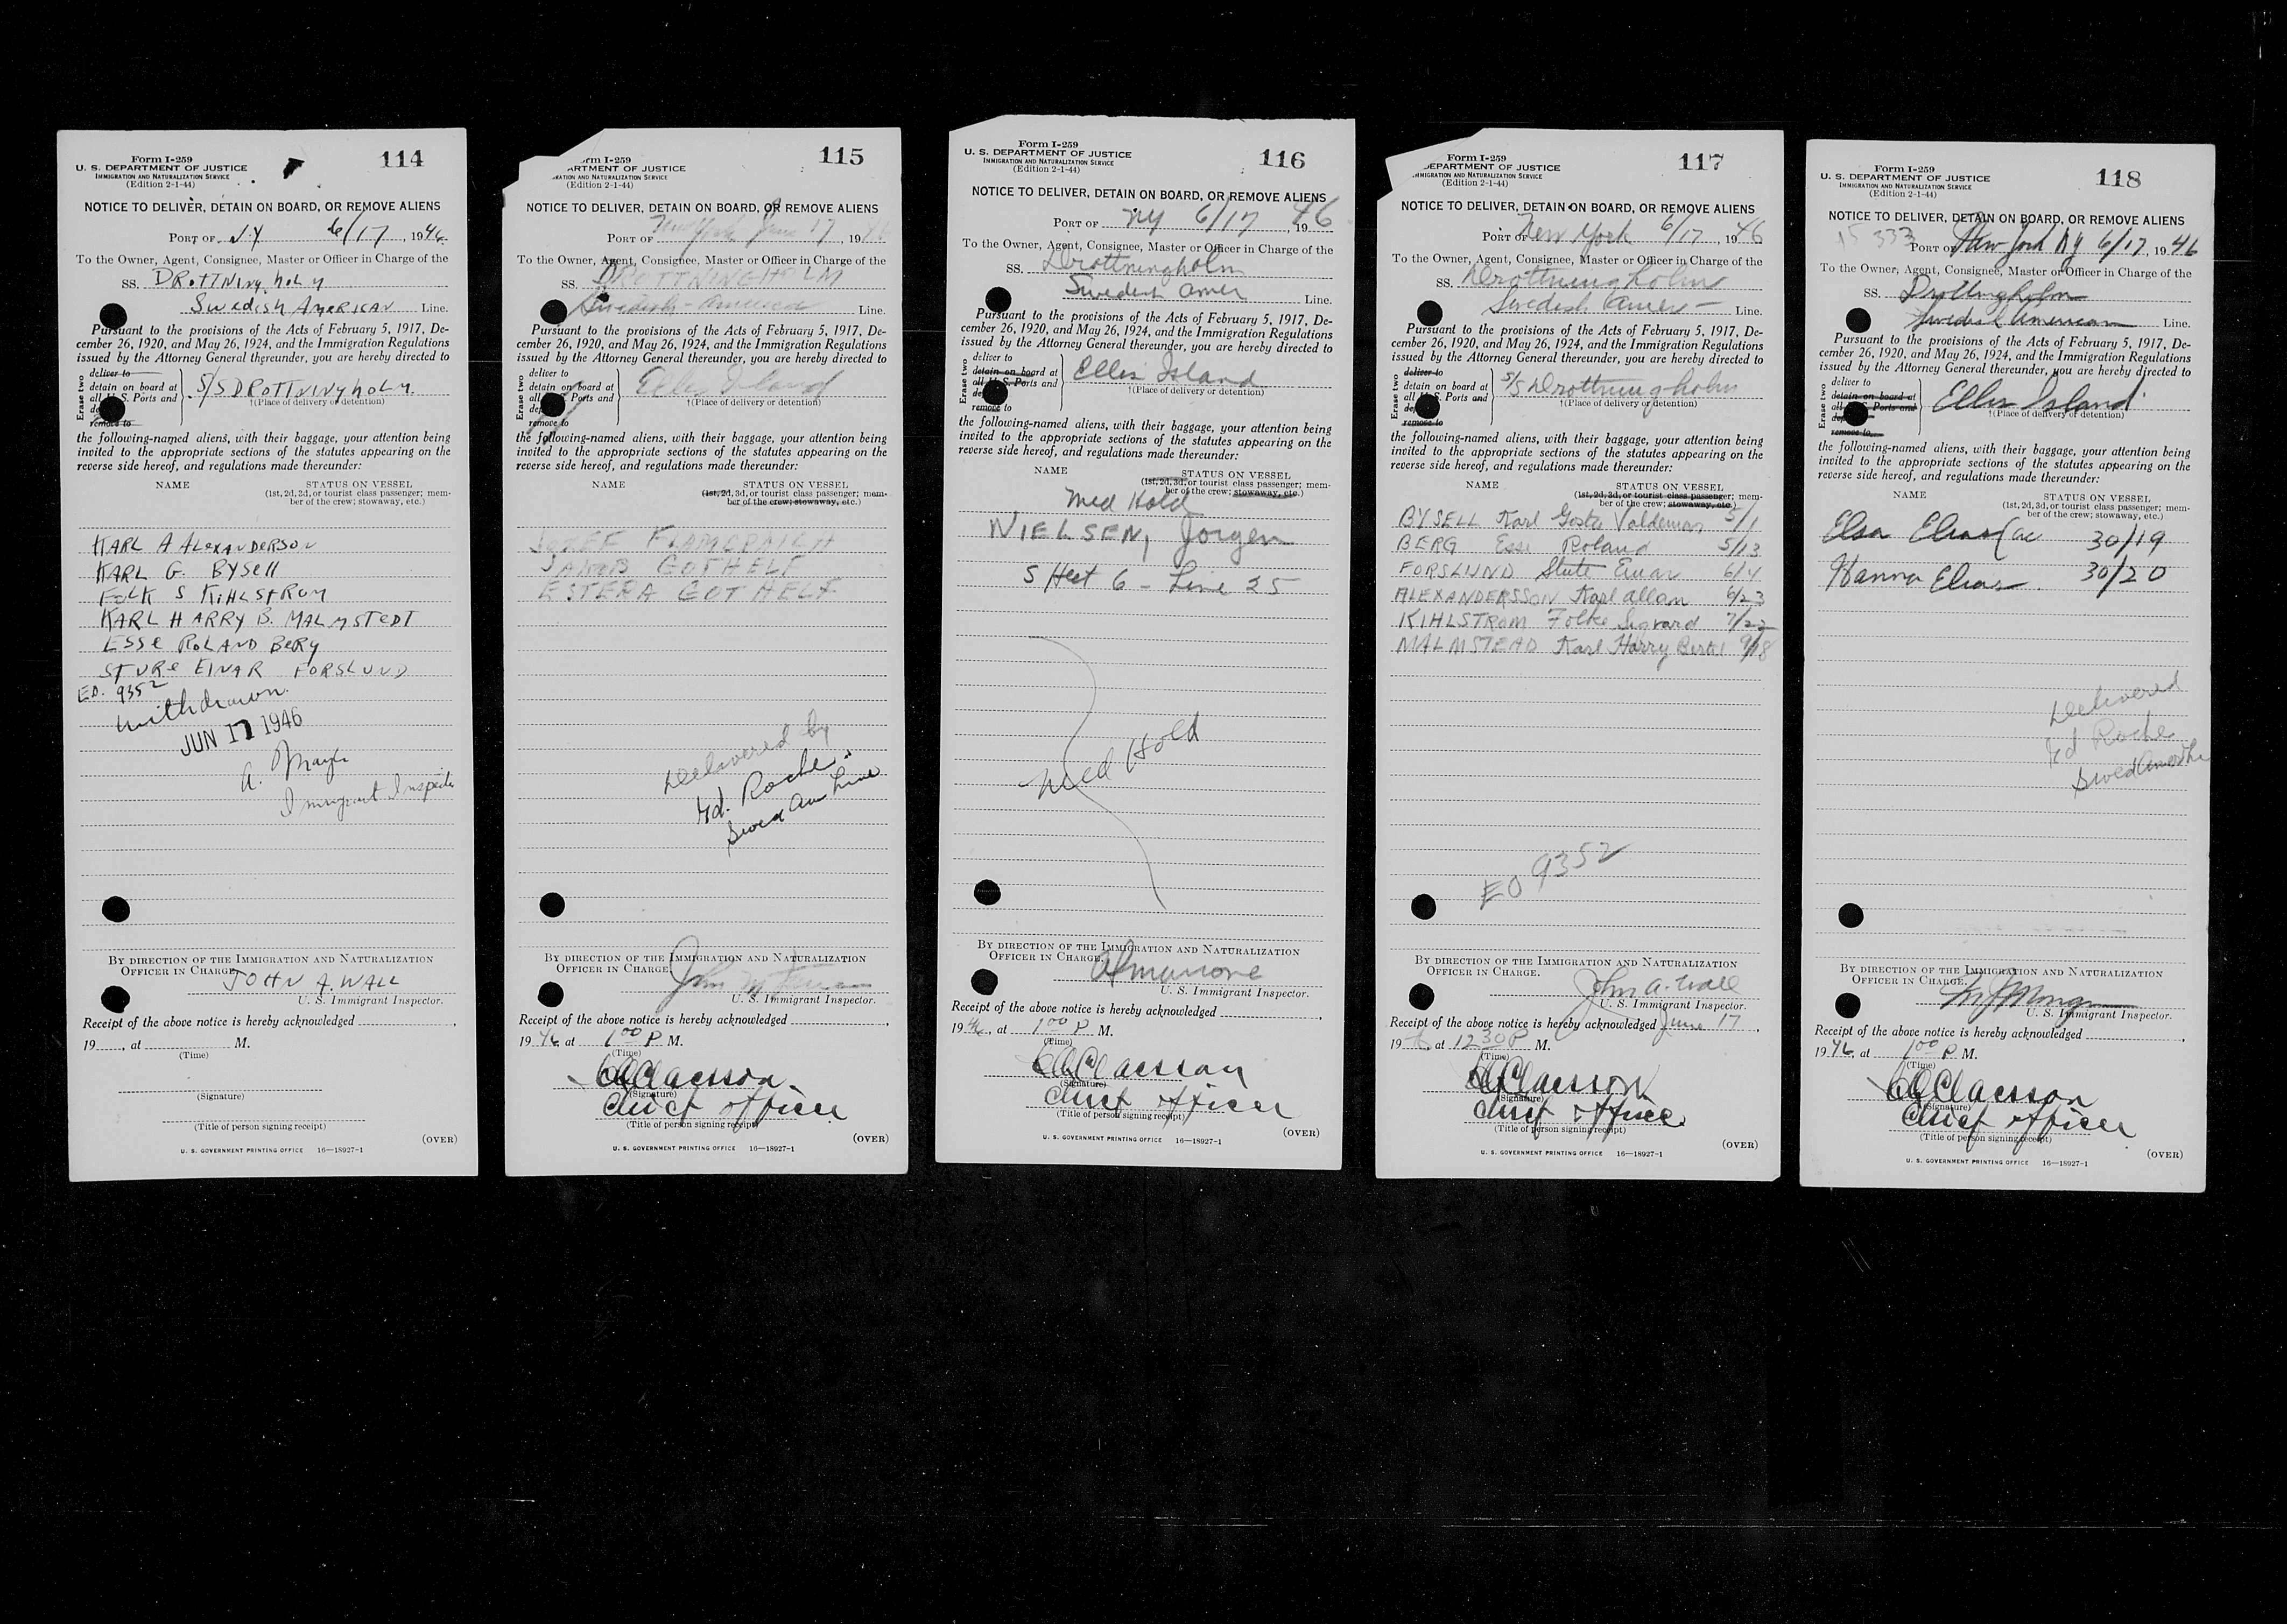 Form I-259
114
U. S. DEPARTMENT OF JUSTICE
IMMIGRATION AND NATURALIZATION SERVICE
(Edition 2-1-44)
NOTICE TO DELIVER, DETAIN ON BOARD, OR REMOVE ALIENS
PORT OF N.Y 6/17, 1946
To the Owner, Agent, Consignee, Master or Officer in Charge of the
SS. DROTTNINgholm
Swedish AMERICAN Line.
Pursuant to the provisions of the Acts of February 5, 1917, De-
cember 26, 1920, and May 26, 1924, and the Immigration Regulations
issued by the Attorney General thereunder, you are hereby directed to
Erase two
deliver to
detain on board at
all U. S. Ports and
remove to
S/S DROTTNINgholm.
†(Place of delivery or detention)
the following-named aliens, with their baggage, your attention being
invited to the appropriate sections of the statutes appearing on the
reverse side hereof, and regulations made thereunder:
NAME STATUS ON VESSEL
(1st, 2d, 3d, or tourist class passenger; mem-
ber of the crew; stowaway, etc.)
KARL A ALEXANDERSON
KARL G. BYSELL
FOLK S KIHLSTROM
KARL HARRY B. MALMSTEDT
ESSE ROLAND BERG
STURE EINAR FORSLUND
EO. 9352
withdrawn.
JUN 17 1946
Immigrant Inspector
BY DIRECTION OF THE IMMIGRATION AND NATURALIZATION
OFFICER IN CHARGE.
JOHN A. WALL
U. S. Immigrant Inspector.
Receipt of the above notice is hereby acknowledged
19 , at M.
(Time)
(Signature)
(Title of person signing receipt)
(OVER)
U. S. GOVERNMENT PRINTING OFFICE 16—18927-1
Form I-259
115
ARTMENT OF JUSTICE
NATURALIZATION SERVICE
(Edition 2-1-44)
NOTICE TO DELIVER, DETAIN ON BOARD, OR REMOVE ALIENS
PORT OF New York June 17, 1946
To the Owner, Agent, Consignee, Master or Officer in Charge of the
SS. DROTTNINGHOLM
Swedish-America Line.
Pursuant to the provisions of the Acts of February 5, 1917, De-
cember 26, 1920, and May 26, 1924, and the Immigration Regulations
issued by the Attorney General thereunder, you are hereby directed to
Erase two
deliver to
detain on board at
all U. S. Ports and
remove to
Ellis Island
†(Place of delivery or detention)
the following-named aliens, with their baggage, your attention being
invited to the appropriate sections of the statutes appearing on the
reverse side hereof, and regulations made thereunder:
NAME STATUS ON VESSEL
(1st, 2d, 3d, or tourist class passenger; mem-
ber of the crew; stowaway, etc.)
JOZEF
JAKOB GOTHELF
ESTERA GOTHELF
Delivered by
Ed. Roche
Swed Am Line
BY DIRECTION OF THE IMMIGRATION AND NATURALIZATION
OFFICER IN CHARGE.
John
U. S. Immigrant Inspector.
Receipt of the above notice is hereby acknowledged
1946, at 1 00 P. M.
(Time)
Claesson
(Signature)
Chief officer
(Title of person signing receipt)
(OVER)
U. S. GOVERNMENT PRINTING OFFICE 16—18927-1
Form I-259
116
U. S. DEPARTMENT OF JUSTICE
IMMIGRATION AND NATURALIZATION SERVICE
(Edition 2-1-44)
NOTICE TO DELIVER, DETAIN ON BOARD, OR REMOVE ALIENS
PORT OF NY 6/17, 1946
To the Owner, Agent, Consignee, Master or Officer in Charge of the
SS. Drottningholm
Swedish Amer Line.
Pursuant to the provisions of the Acts of February 5, 1917, De-
cember 26, 1920, and May 26, 1924, and the Immigration Regulations
issued by the Attorney General thereunder, you are hereby directed to
Erase two
deliver to
detain on board at
all U. S. Ports and
remove to
Ellis Island
†(Place of delivery or detention)
the following-named aliens, with their baggage, your attention being
invited to the appropriate sections of the statutes appearing on the
reverse side hereof, and regulations made thereunder:
NAME STATUS ON VESSEL
(1st, 2d, 3d, or tourist class passenger; mem-
ber of the crew; stowaway, etc.)
Med Hold
NIELSEN, Jorgen
SHeet 6 - Line 25
Med Hold
BY DIRECTION OF THE IMMIGRATION AND NATURALIZATION
OFFICER IN CHARGE.
U. S. Immigrant Inspector.
Receipt of the above notice is hereby acknowledged
1946, at 1 00 P. M.
(Time)
Claesson
(Signature)
Chief officer
(Title of person signing receipt)
(OVER)
U. S. GOVERNMENT PRINTING OFFICE 16—18927-1
Form I-259
117
DEPARTMENT OF JUSTICE
IMMIGRATION AND NATURALIZATION SERVICE
(Edition 2-1-44)
NOTICE TO DELIVER, DETAIN ON BOARD, OR REMOVE ALIENS
PORT OF New York 6/17, 1946
To the Owner, Agent, Consignee, Master or Officer in Charge of the
SS. Drottningholm
Swedish Amer — Line.
Pursuant to the provisions of the Acts of February 5, 1917, De-
cember 26, 1920, and May 26, 1924, and the Immigration Regulations
issued by the Attorney General thereunder, you are hereby directed to
Erase two
deliver to
detain on board at
all U. S. Ports and
remove to
S/S Drottningholm
†(Place of delivery or detention)
the following-named aliens, with their baggage, your attention being
invited to the appropriate sections of the statutes appearing on the
reverse side hereof, and regulations made thereunder:
NAME STATUS ON VESSEL
(1st, 2d, 3d, or tourist class passenger; mem-
ber of the crew; stowaway, etc.)
BYSELL Karl Gosta Valdemar 5/1
BERG Esse Roland 5/13
FORSLUND Sture Einar 6/4
ALEXANDERSSON Karl Allan 6/23
KIHLSTROM Folke Sigvard 7/22
MALMSTEAD Karl Harry Bertil 9/18
EO 9352
BY DIRECTION OF THE IMMIGRATION AND NATURALIZATION
OFFICER IN CHARGE.
John A. Wall
U. S. Immigrant Inspector.
Receipt of the above notice is hereby acknowledged June 17,
19 , at 12 30 P M.
(Time)
Claesson
(Signature)
Chief officer
(Title of person signing receipt)
(OVER)
U. S. GOVERNMENT PRINTING OFFICE 16—18927-1
Form I-259
118
U. S. DEPARTMENT OF JUSTICE
IMMIGRATION AND NATURALIZATION SERVICE
(Edition 2-1-44)
NOTICE TO DELIVER, DETAIN ON BOARD, OR REMOVE ALIENS
15 333
PORT OF New York NY 6/17, 1946
To the Owner, Agent, Consignee, Master or Officer in Charge of the
SS. Drottngholm
Swedish American Line.
Pursuant to the provisions of the Acts of February 5, 1917, De-
cember 26, 1920, and May 26, 1924, and the Immigration Regulations
issued by the Attorney General thereunder, you are hereby directed to
Erase two
deliver to
detain on board at
all U. S. Ports and
remove to
Ellis Island
†(Place of delivery or detention)
the following-named aliens, with their baggage, your attention being
invited to the appropriate sections of the statutes appearing on the
reverse side hereof, and regulations made thereunder:
NAME STATUS ON VESSEL
(1st, 2d, 3d, or tourist class passenger; mem-
ber of the crew; stowaway, etc.)
Elsa Elias 30/19
Hanna Elias 30/20
Delivered
Ed Roche
Swed Amer
BY DIRECTION OF THE IMMIGRATION AND NATURALIZATION
OFFICER IN CHARGE.
U. S. Immigrant Inspector.
Receipt of the above notice is hereby acknowledged
1946, at 1 00 P. M.
(Time)
Claesson
(Signature)
Chief officer
(Title of person signing receipt)
(OVER)
U. S. GOVERNMENT PRINTING OFFICE 16—18927-1